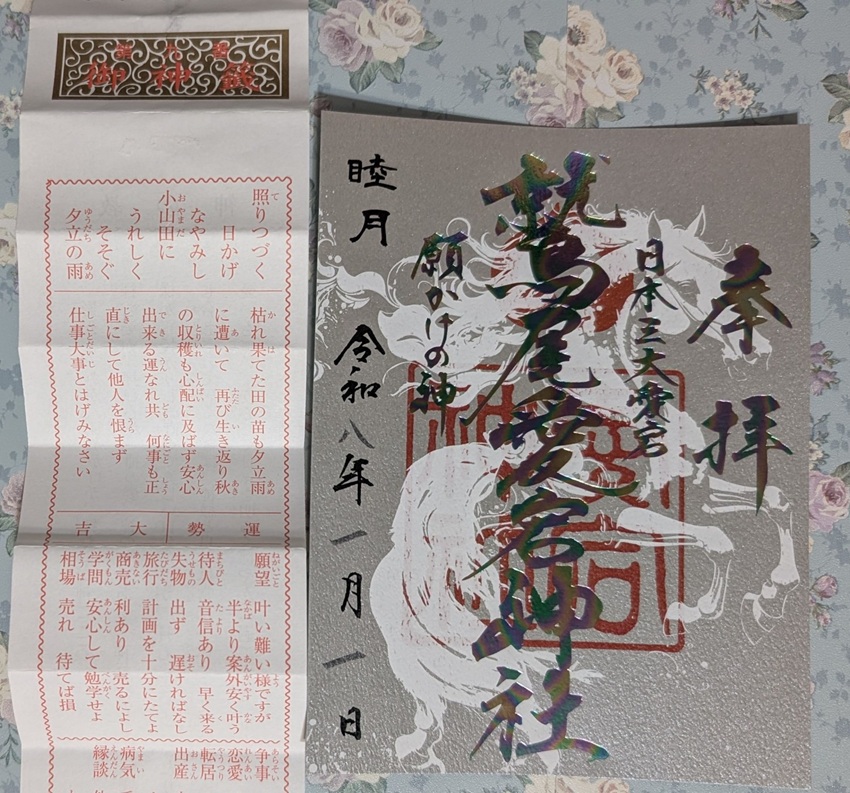 御神籤
照りつづく
日かげ
なやみし
小山田に
うれしく
そそぐ
夕立の雨
枯れ果てた田の苗も夕立雨
に遭いて 再び生き返り秋
の収穫も心配に及ばず安心
出来る運なれ共 何事も正
直にして他人を恨まず
仕事大事とはげみなさい
運勢 大吉
願望 叶い難い様ですが
半より案外安く叶う
待人 音信あり 早く来る
失物 出ず 遅ければなし
旅行 計画を十分にたてよ
商売 利あり 売るによし
学問 安心して勉学せよ
相場 売れ 待てば損
争事
恋愛
転居
出産
病気
縁談
奉拝
日本三大愛宕
鷲尾愛宕神社
願かけの神
睦月
令和八年一月一日